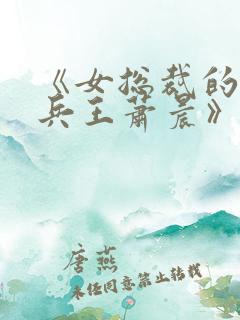 《女总裁的
兵王萧晨》
唐燕
未经同意禁止转载